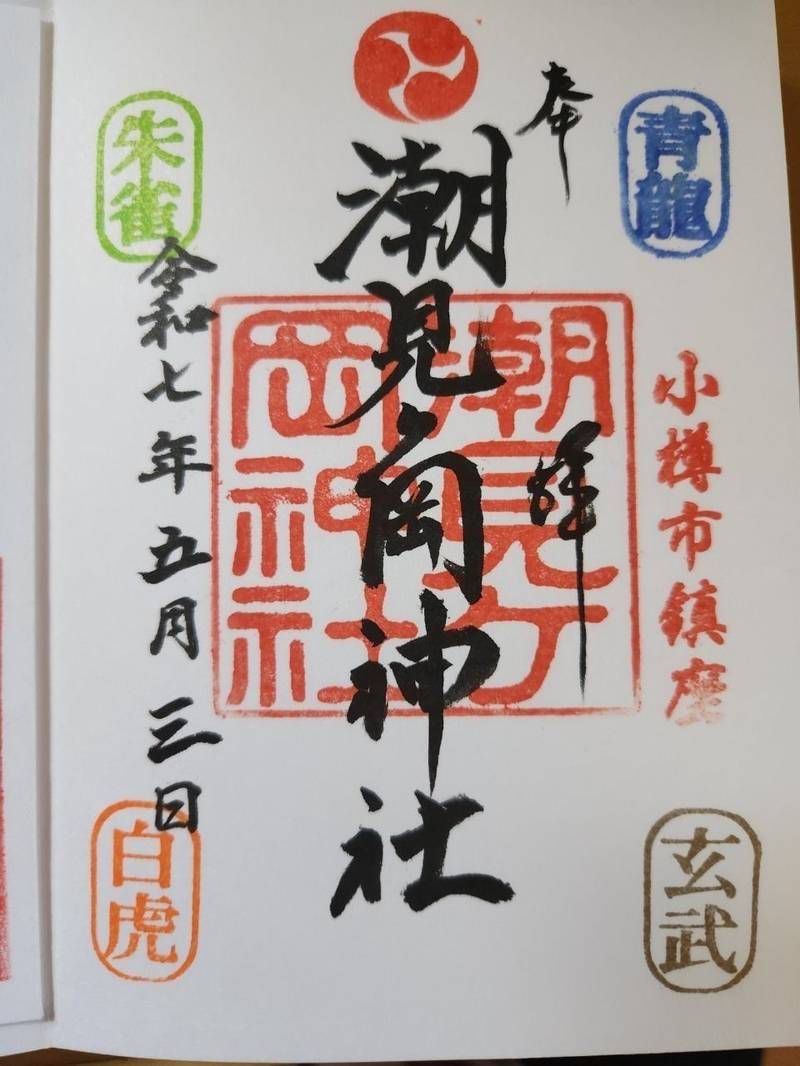 青龍
奉拝
小樽市鎮座
玄武
潮見ヶ岡神社
潮見ヶ岡神社
朱雀
令和七年五月三日
白虎